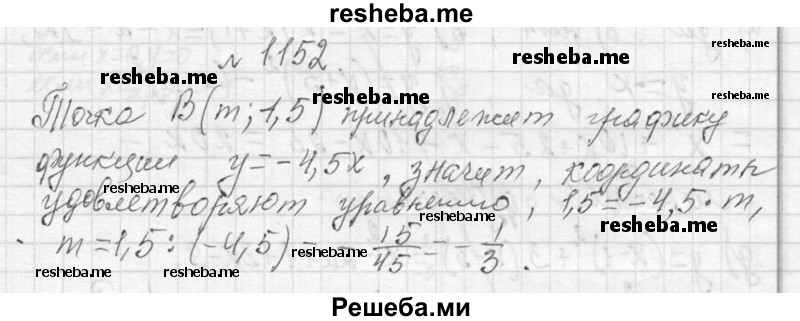 resheba.me
№ 1152.
resheba.me
resheba.me
resheba.me
Точка B(m; 1,5) принадлежит графику
resheba.me
функции y = -4,5x, значит, координаты
resheba.me
удовлетворяют уравнению, 1,5 = -4,5·m,
resheba.me
resheba.me
m = 1,5 : (-4,5) = -15/45 = -1/3.
resheba.me
resheba.me
resheba.me
resheba.me
Решеба.ми